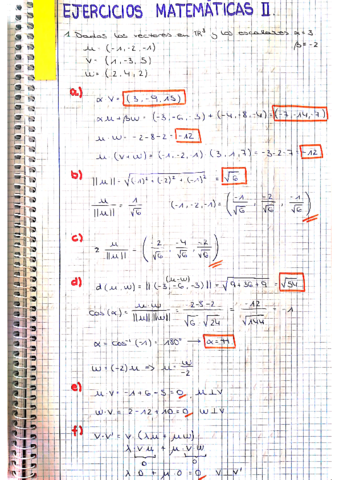 EJERCICIOS MATEMÁTICAS II.
1. Dados los vectores en IR³ y los escalares α=3
μ = (-1,-2,-1) β=-2
v = (1,-3,5)
w = (2,4,2)
a)
α v = (3,-9,15)
α μ + βw = (-3,-6,-3) + (-4,-8,-4) = (-7,-14,-7)
μ · w = -2-8-2 = -12
μ (v+w) = (-1,-2,1) (3,1,7) = -3-2-7 = -12
b)
||μ|| = √(-1)²+(-2)²+(-1)² = √6
μ/||μ|| = 1/√6 (-1,-2,-1) = (-1/√6, -2/√6, -1/√6)
c)
2 μ/||μ|| = (-2/√6, -4/√6, -2/√6)
d)
(μ-w)
d(μ,w) = ||(-3,-6,-3)|| = √9+36+9 = √54
cos(α) = μ·w/||μ||||w|| = -2-8-2/√6 √24 = -12/√144 = -1
α = cos⁻¹(-1) = 180° → α=π
w = (-2)μ => μ = w/-2
e)
μ v = -1+6-5 = 0, μ⊥v
w·v = 2-12+10 = 0 w⊥v
f)
v·v' = v (λμ + μw)
λ v·μ + μ v·w
0 0
λ 0 + μ 0 = 0 v⊥v'